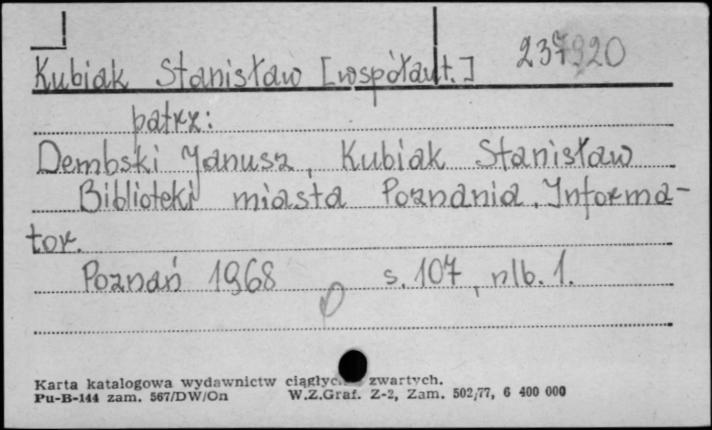 237920
Kubiak Stanisław [współaut.]
patrz:
Dembski Janusz, Kubiak Stanisław
Biblioteki miasta Poznania. Informa-
tor.
Poznań 1968 s. 107, nlb. 1.
Karta katalogowa wydawnictw zwartych.
Pu-B-144 zam. 567/DW/On W.Z.Graf. Z-2, Zam. 502/77, 6 400 000